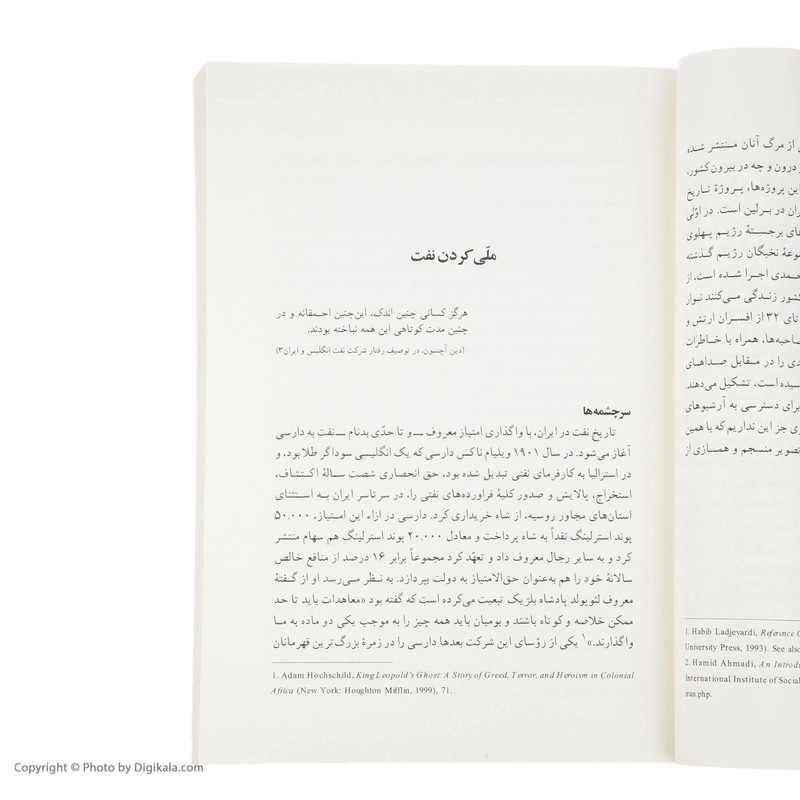 از مرگ آنان منتشر شده
درون و چه در بیرون کشور،
این پروژه‌ها، پروژهٔ تاریخ
در برلین است. در اوّلی
برجستهٔ رژیم پهلوی
نخبگان رژیم گذشته
اجرا شده است، از
کشور زندگی می‌کنند نوار
تای ۳۲ از افسران ارتش و
همراه با خاطران
را در مقابل صداهای
است، تشکیل می‌دهند.
برای دسترسی به آرشیوهای
جز این نداریم که با همین
تصویر منسجم و همسازی از
1. Habib Ladjevardi, Reference
University Press, 1993). See also
2. Hamid Ahmadi, An
International Institute of Social
iran.php.
ملّی کردن نفت
هرگز کسانی چنین اندک، این‌چنین احمقانه و در
چنین مدت کوتاهی این همه نباخته بودند.
(دین آچسون، در توصیف رفتار شرکت نفت انگلیس و ایران۳)
سرچشمه‌ها
تاریخ نفت در ایران، با واگذاری امتیاز معروف ــ و تا حدّی بدنام ــ نفت به دارسی
آغاز می‌شود. در سال ۱۹۰۱ ویلیام ناکس دارسی که یک انگلیسی سوداگر طلا بود، و
در استرالیا به کارفرمای نفتی تبدیل شده بود، حق انحصاری شصت سالهٔ اکتشاف،
استخراج، پالایش و صدور کلیهٔ فراورده‌های نفتی را، در سرتاسر ایران به استثنای
استان‌های مجاور روسیه، از شاه خریداری کرد. دارسی در ازاء این امتیاز، ۵۰.۰۰۰
پوند استرلینگ نقداً به شاه پرداخت و معادل ۲۰.۰۰۰ پوند استرلینگ هم سهام منتشر
کرد و به سایر رجال معروف داد و تعهّد کرد مجموعاً برابر ۱۶ درصد از منافع خالص
سالانهٔ خود را هم به‌عنوان حق‌الامتیاز به دولت بپردازد. به نظر می‌رسد او از گفتهٔ
معروف لئوپولد پادشاه بلژیک تبعیت می‌کرده است که گفته بود «معاهدات باید تا حد
ممکن خلاصه و کوتاه باشند و بومیان باید همه چیز را به موجب یکی دو ماده به ما
واگذارند.»۱ یکی از رؤسای این شرکت بعدها دارسی را در زمرهٔ بزرگ‌ترین قهرمانان
1. Adam Hochschild, King Leopold's Ghost: A Story of Greed, Terror, and Heroism in Colonial
Africa (New York: Houghton Mifflin, 1999), 71.
Copyright © Photo by Digikala.com